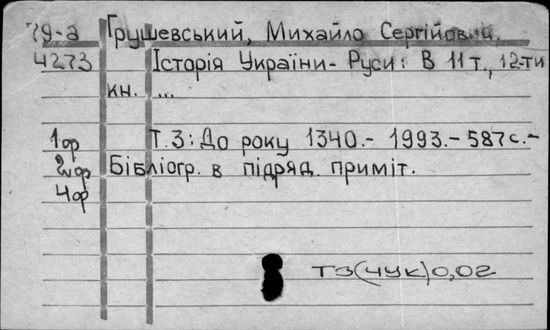 79-а Грушевський, Михайло Сергійович.
4273 Історія України-Руси: В 11 т., 12-ти
кн. ...
1ор Т.3: До року 1340.- 1993.- 587с.-
2ор Бібліогр. в підряд. приміт.
4ор
ТЗ(ЧУК)0,02